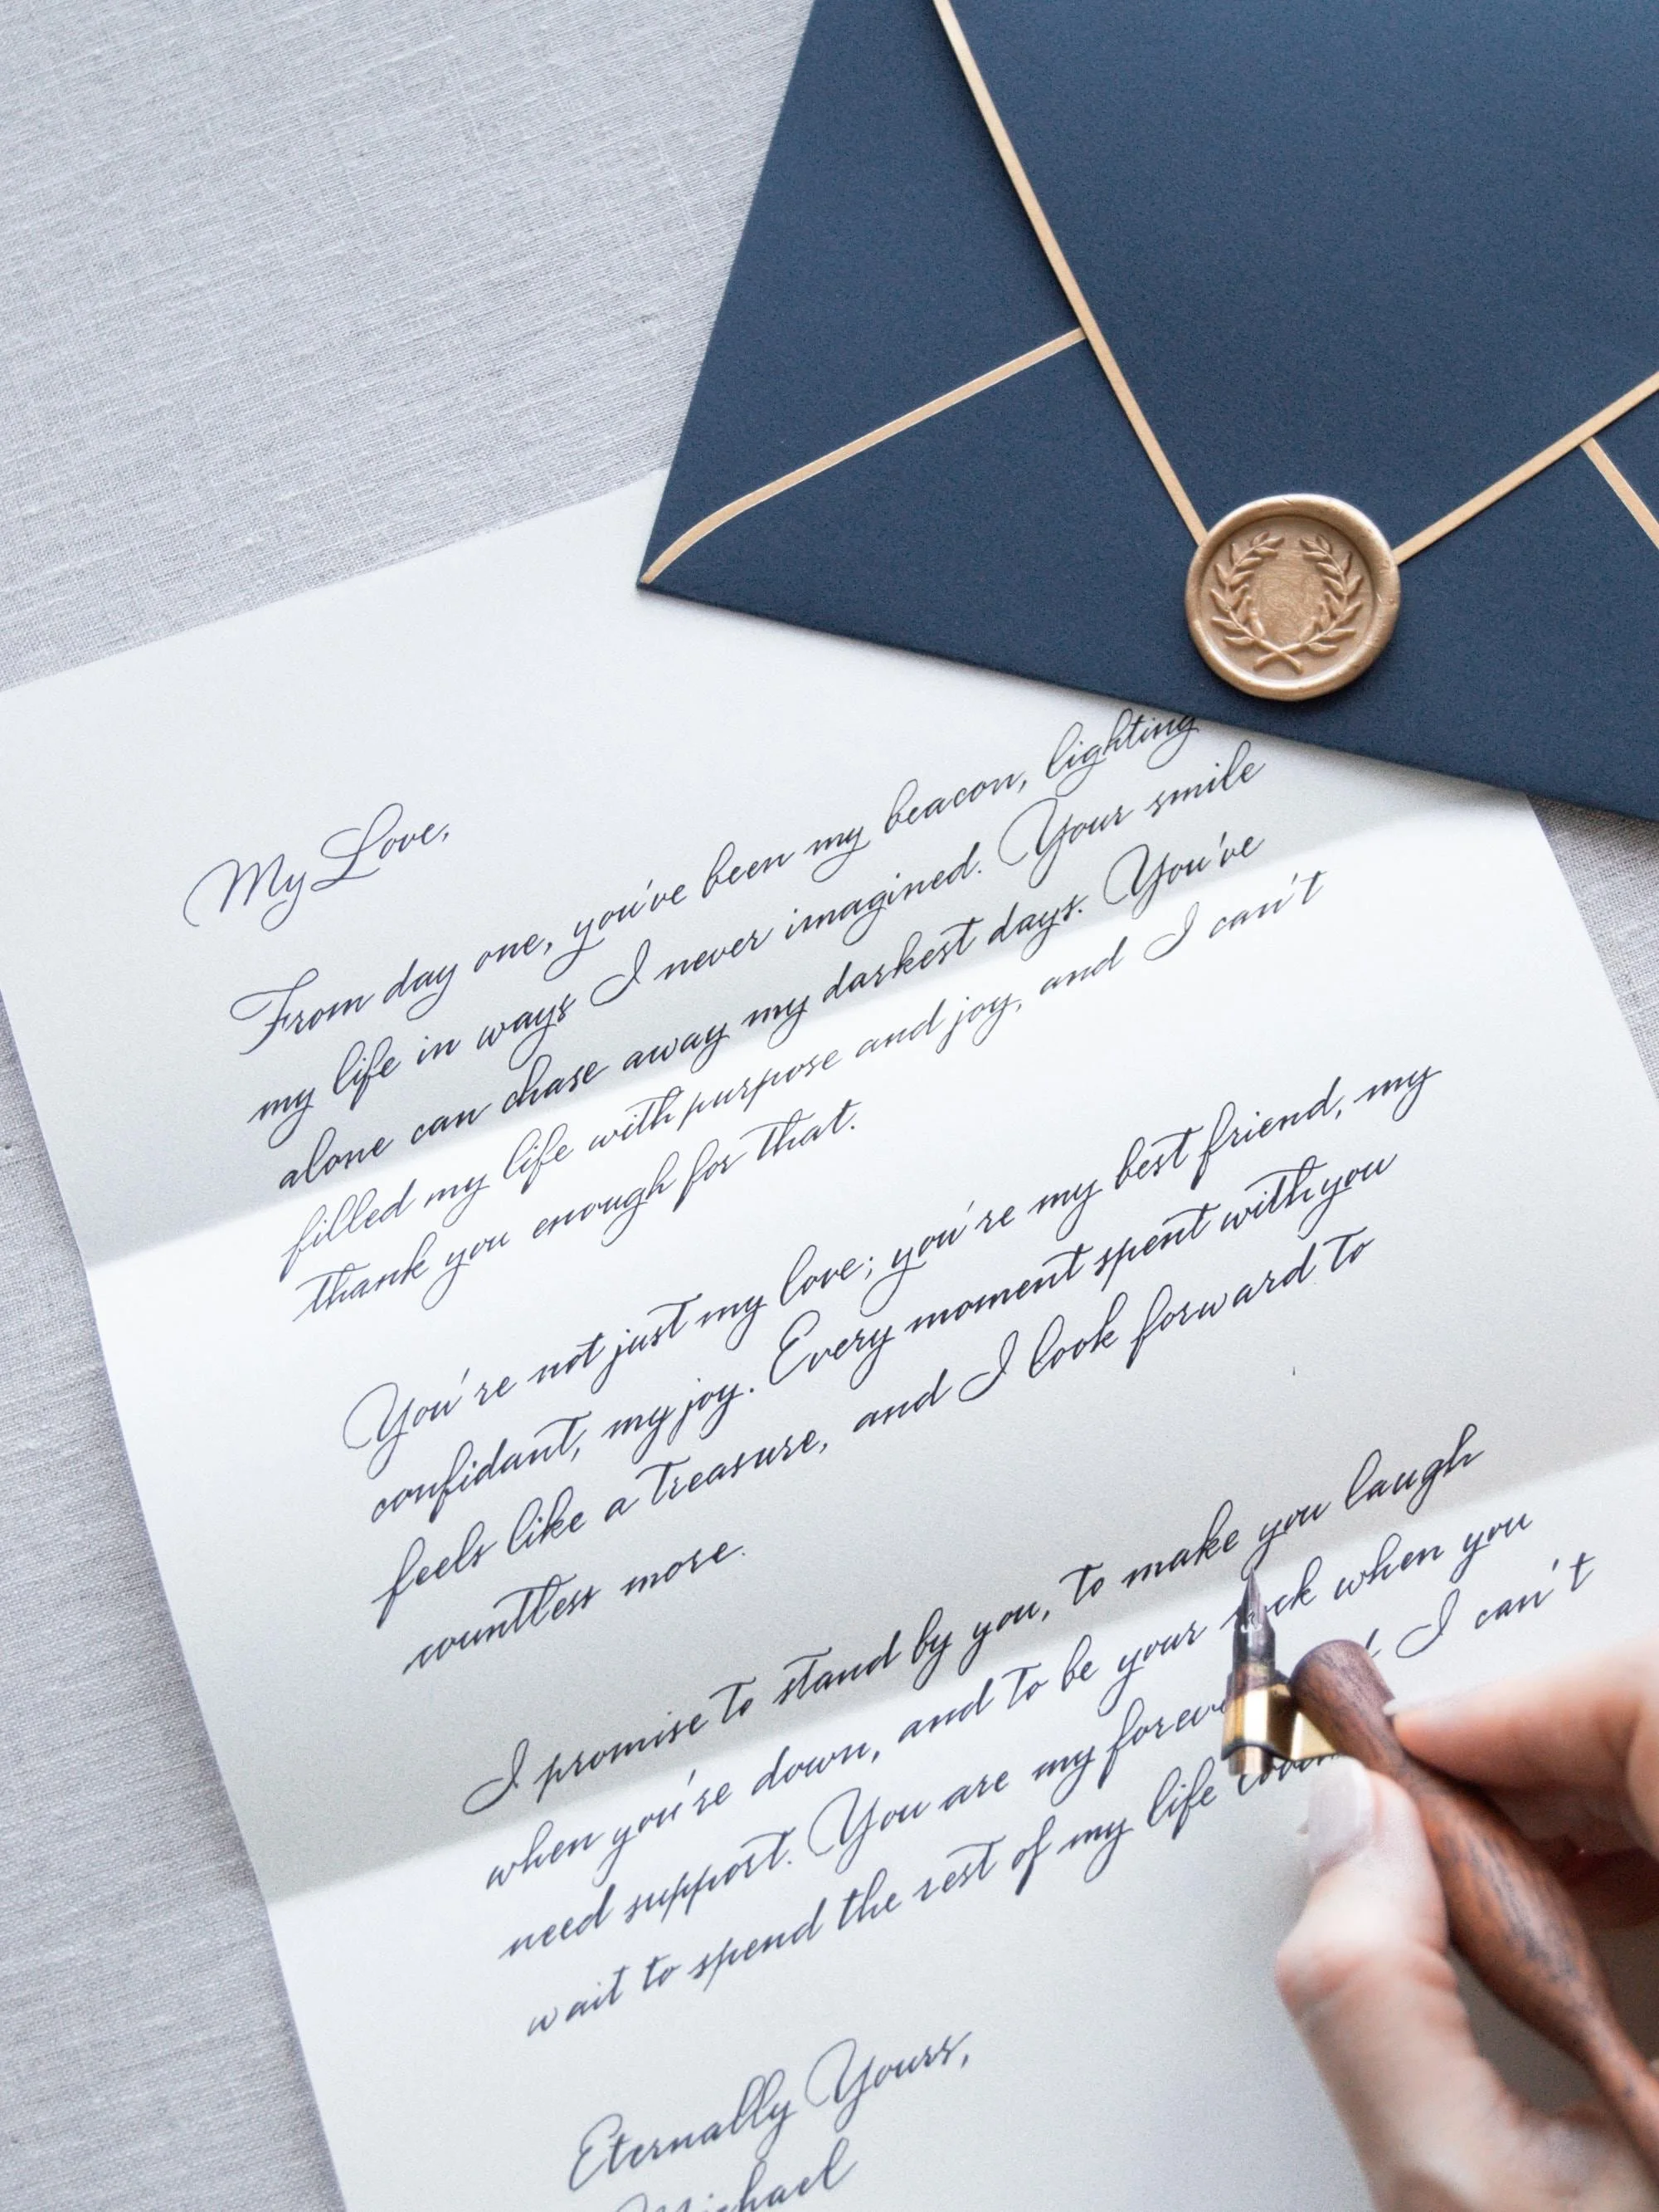 My Love,
From day one, you've been my beacon, lighting
my life in ways I never imagined. Your smile
alone can chase away my darkest days. You've
filled my life with purpose and joy, and I can't
thank you enough for that.
You're not just my love; you're my best friend, my
confidant, my joy. Every moment spent with you
feels like a treasure, and I look forward to
countless more.
I promise to stand by you, to make you laugh
when you're down, and to be your when you
need support. You are my I can't
wait to spend the rest of my life
Eternally Yours,
Michael